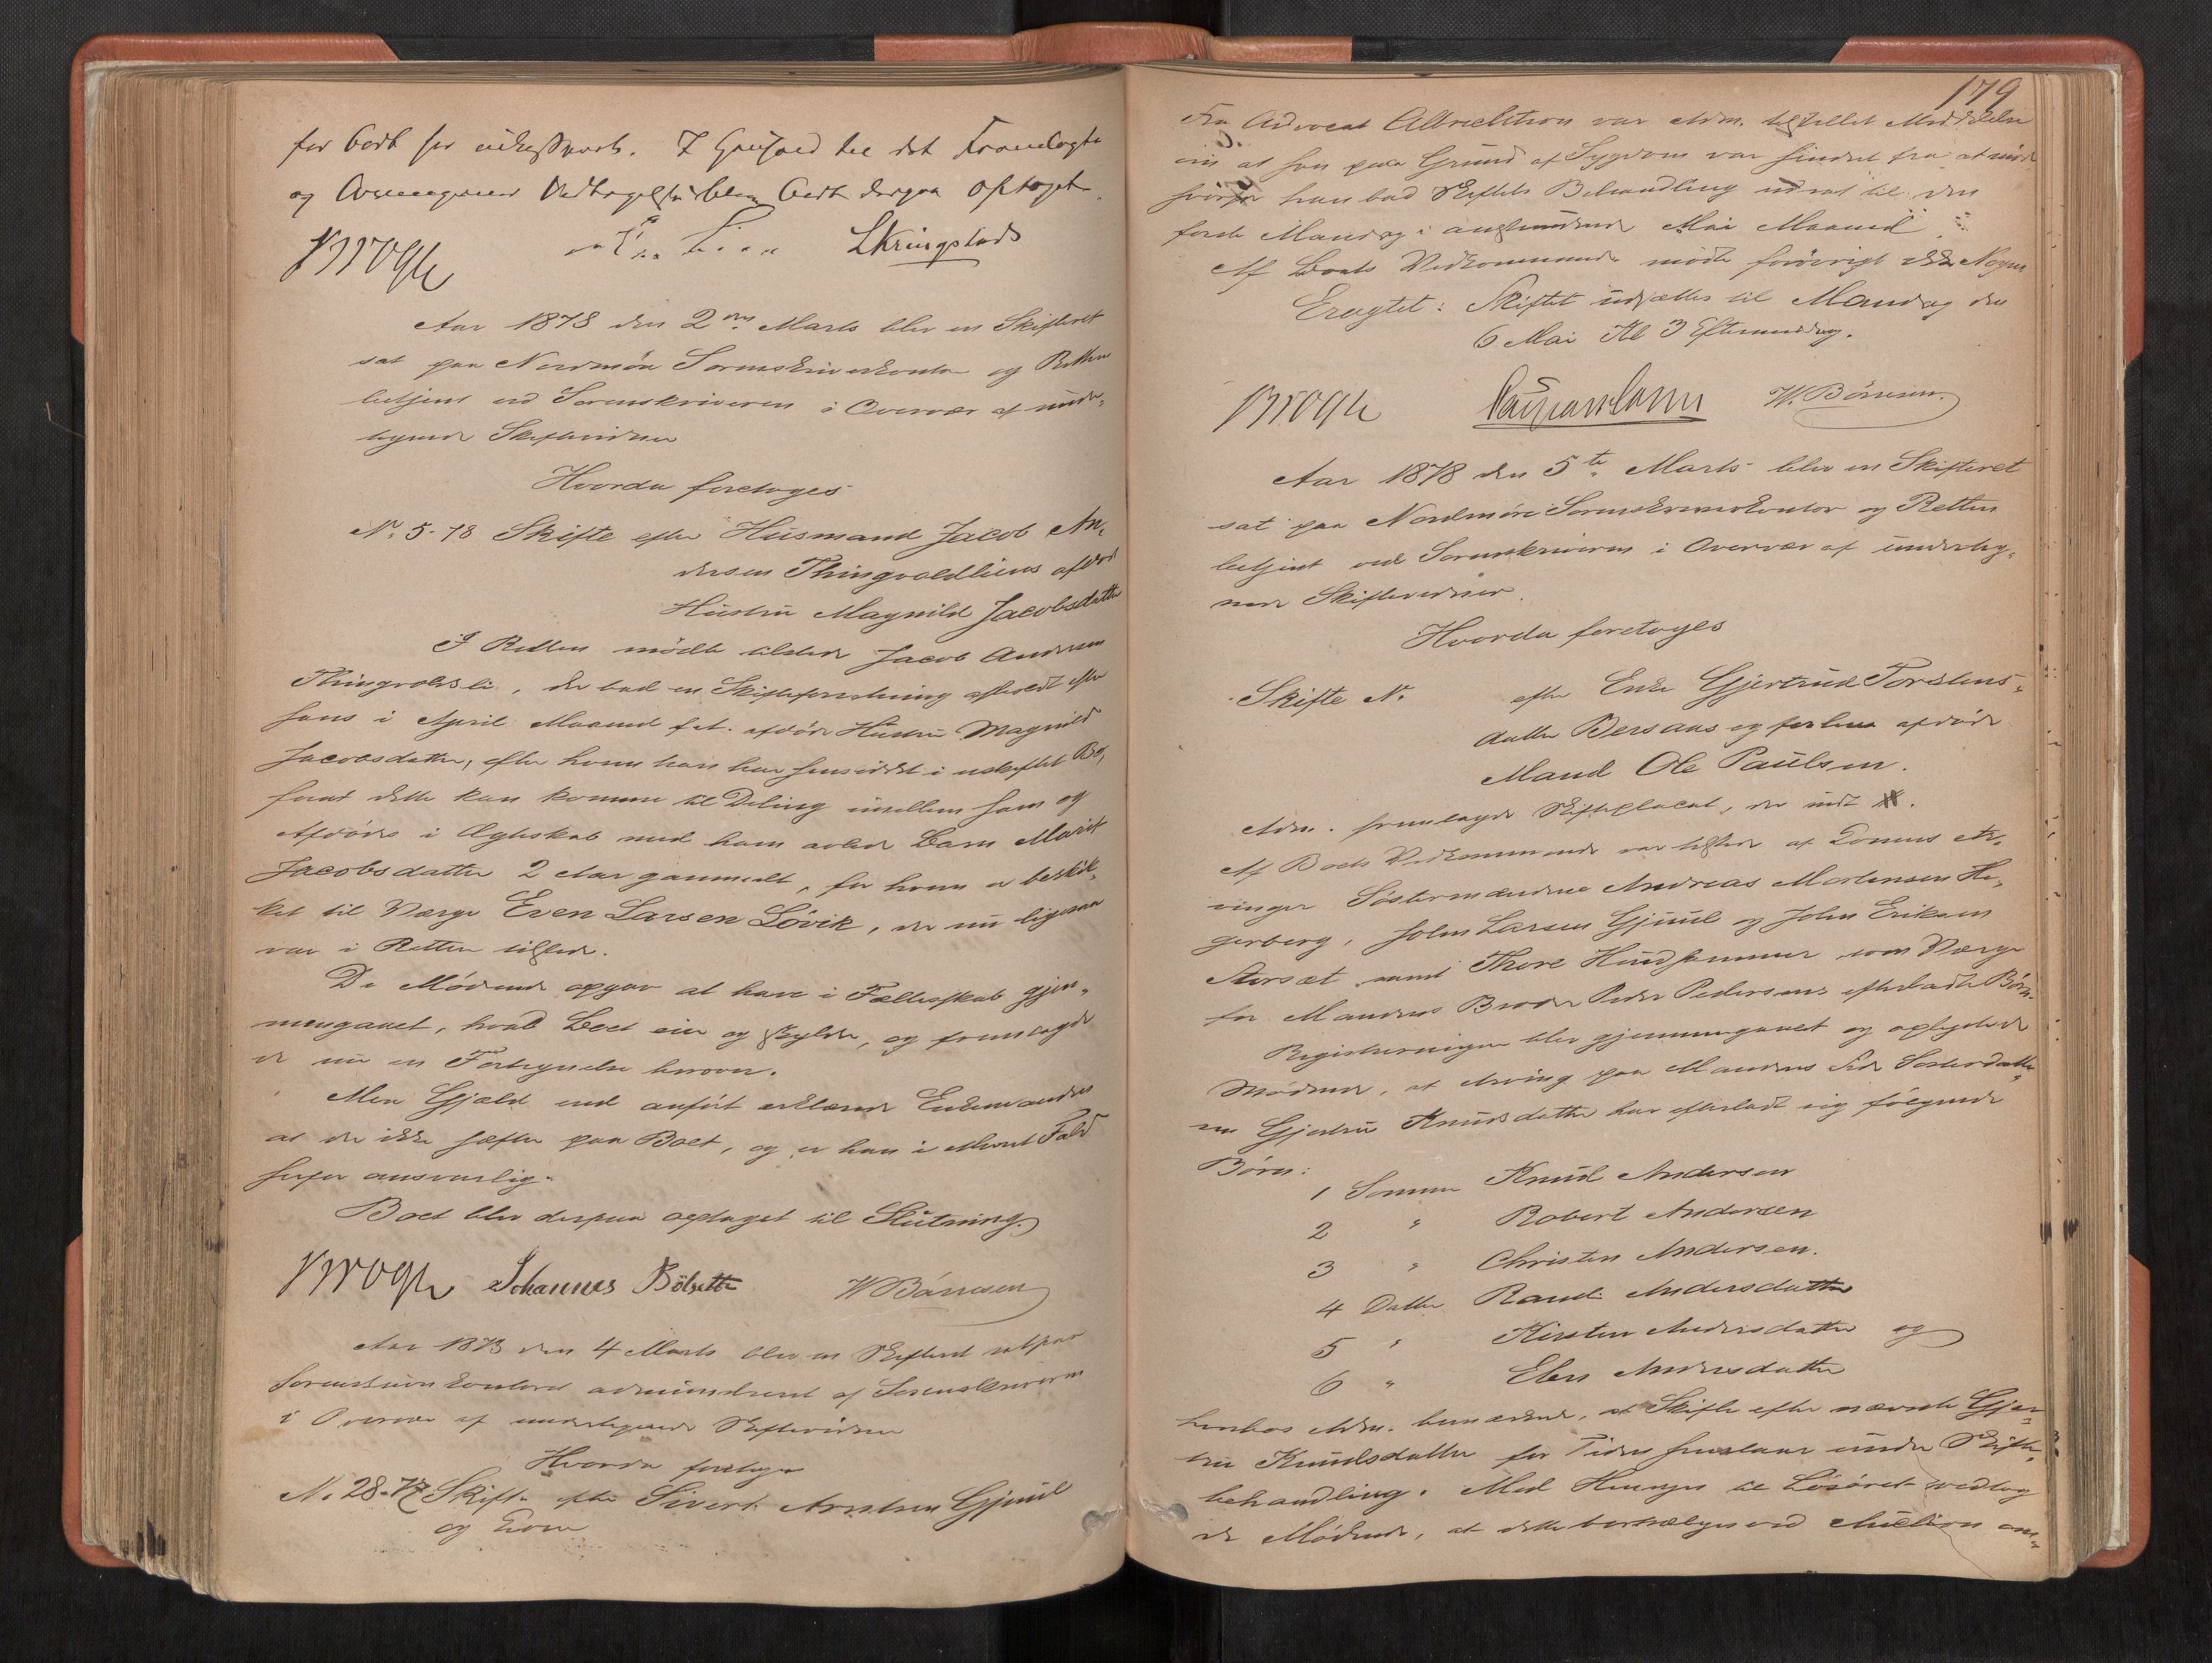 for Bort for
I Henhold til det Fremlagte
og Arvingernes Vedtagelse blev Boet derpaa optaget.
Krogh LKringstad
Aar 1878 den 2den Marts blev en Skifteret
sat paa Nordmøre Sorenskriverkontor og Retten
betjent ved Sorenskriveren i Overvær af under-
tegnede Skiftevidner
Hvorda foretoges
No 5-78 Skifte efter Husmand Jacob An-
dersen Thingvoldliens afdøde
Hustru Magnild Jacobsdatter
I Retten mødte tilstede Jacob Andersen
Thingvoldli, der bad en Skifteforretning afholdt efter
hans i April Maaned f. A. afdøde Hustru Magnild
Jacobsdatter, efter hvem han har hensiddet i uskiftet Bo,
forat dette kan komme til Deling imellem ham og
Afdødes i Ægteskab med ham avlede Barn Marit
Jacobsdatter 2 Aar gammelt, for hvem er beskik-
ket til Værge Even Larsen Løvik, der nu ligesaa
var i Retten tilstede.
De Mødende opgav at have i Fællesskab gjen-
nemgaaet, hvad Boet eier og skylder, og fremlagde
de nu en Fortegnelse herover.
Mere Gjæld end anført erklærede Enkemanden
at der ikke hæfter paa Boet, og er han i modsat Fald
herfor ansvarlig.
Boet blev derpaa optaget til Slutning.
Krogh Johannes Bölsette W Börresen
Aar 1878 den 4 Marts blev en Skifteret sat paa
Sorenskriverkontoret administreret af Sorenskriveren
i Overvær af undertegnede Skiftevidner
Hvorda foretoges
No 28-77 Skifte efter Sivert Arntsen Gjiuul
og
179
Fra Advocat Albrechtson var Adm. tilstillet Meddelelse
om at han paa Grund af Sygdom var hindret fra at møde
hvorfor han bad Skiftets Behandling udsat til den
første Mandag i anstundende Mai Maaned
Af Boets Vedkommende mødte forøvrigt ikke Nogen
Eragtet: Skiftet udsættes til Mandag den
6 Mai Kl 3 Eftermiddag.
Krogh W. Börresen.
Aar 1878 den 5te Marts blev en Skifteret
sat paa Nordmøre Sorenskriverkontor og Retten
betjent ved Sorenskriveren i Overvær af underteg-
nede Skiftevidner.
Hvorda foretoges
Skifte No efter Enke Gjertrud Torstens-
datter Bersaas og forhen afdøde
Mand Ole Paulsen.
Adm. fremlagde Skifteplacat, der indt.
Af Boets Vedkommende var tilstede af Konens Ar-
vinger Søstermændene Andreas Mortensen He-
gerberg, John Larsen Gjiuul og John Eriksen
Storsæt samt Thore Hundhammer som Værge
for Mandens Broder Peder Pedersens efterladte Børn.
Registreringen blev gjennemgaaet og oplyste de
Mødende, at Arving paa Mandens Side Søsterdatte-
ren Gjertru Knudsdatter har efterladt sig følgende
Børn:
1 Sønnen Knud Andersen
2 " Robert Andersen
3 " Christen Andersen.
4 Datter Randi Andersdatter
5 " Kirsten Andersdatter og
6 " Elen Andersdatter
hvorhos Adm. bemærkede, at Skifte efter nævnte Gjer-
tru Knudsdatter for Tiden henstaar under Skifte-
behandling. Med Hensyn til Løsøret vedtog
de Mødende, at dette bortsælges ved Auction om-